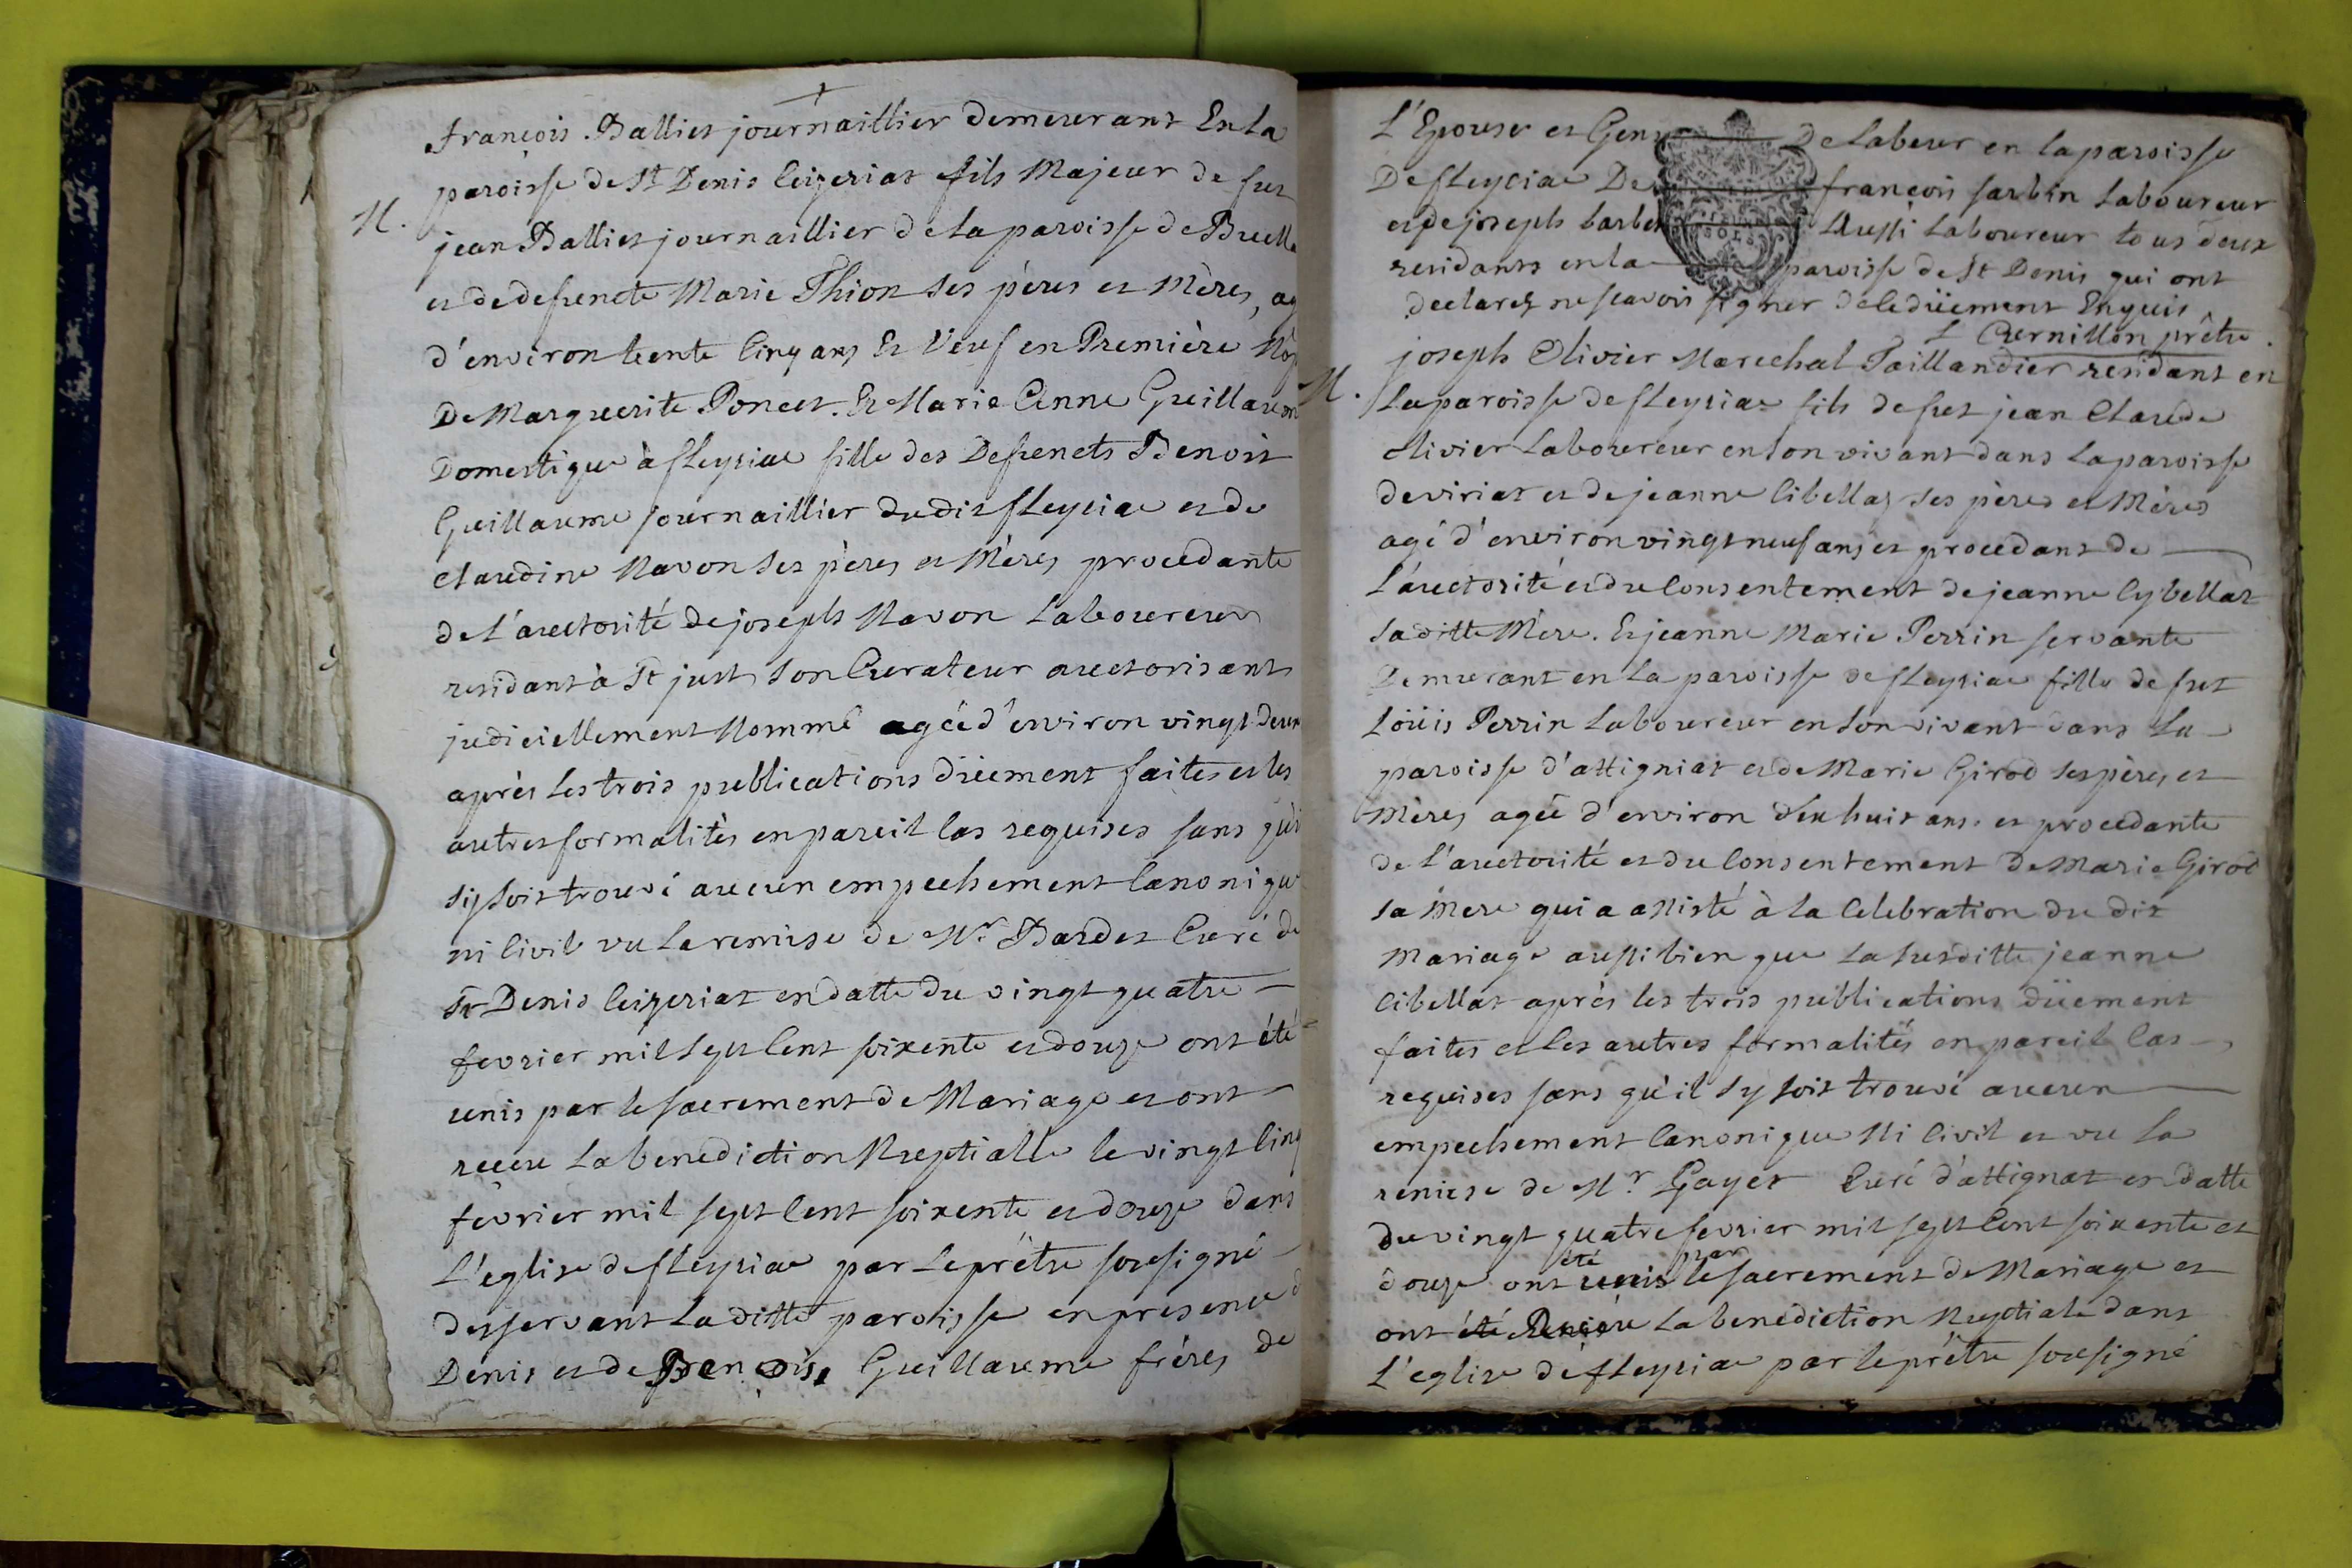 françois Balliet journaillier demeurant En La
paroisse de St Denis Ceizeriat fils Majeur de feu
M.
jean Balliet journaillier de la paroisse de Buelle
et de defuncte Marie Thion ses pères et Mères,
d'environ trente Cinq ans Et Veuf en Première
De Marguerite Poncet. Et Marie Anne Guillaume
Domestique à fleyriae fille des Defuncts Benoit
Guillaume journaillier dudit fleyriae et de
Claudine Navon ses pères et Mères procedante
de L'auctorité de joseph Navon Laboureur
residant à St just son Curateur auctorisant
judiciellement Nommé agée d'environ vingt deux
après Les trois publications düement faites et les
autres formalitès en pareil Cas requises sans qu'il
sy soit trouvé aucun empechement Canonique
ni Civil vu La remise de Mr Bardet Curé de
St Denis Ceizeriat en datte du vingt quatre
fevrier mil sept Cent soixente et douze ont été
unis par le sacrement de Mariage et ont
receu La benediction Nuptialle le vingt Cinq
fevrier mil sept Cent soixente et douze dans
L'eglise de fleyriae par Le prêtre sousigné
desservant La ditte paroisse en presence
Denis et de françois Guillaume frères de
L'Epouse et Gens De Labeur en la paroisse
De fleyriae De françois sarbin Laboureur
et de joseph barbet Aussi Laboureur tous deux
residants en la paroisse de St Denis qui ont
declarez ne scavoir signer de ce düement Enquis
Cornillon prêtre.
M.
joseph Olivier Marechal Taillandier residant en
La paroisse de fleyriae fils de feu jean Claude
Olivier Laboureur en son vivant dans La paroisse
de viriat et de jeanne Cibellaz ses pères et Mères
agé d'environ vingt neuf ans et procedant de
L'auctorité et du Consentement de jeanne Cybellaz
sa ditte Mère. Et jeanne Marie Perrin servante
Demeurant en La paroisse de fleyriae fille de feu
Loüis Perrin Laboureur en son vivant dans La
paroisse d'attigniat et de Marie Girod ses pères et
Mères agée d'environ dix huit ans. et procedante
de L'auctorité et du Consentement De Marie Girod
sa Mere qui a assisté à la Celebration du dit
Mariage aussi bien que La susditte jeanne
Cibellat après les trois publications düement
faites et les autres formalités en pareil Cas
requises sans qu'il sy soit trouvé aucun
empechement Canonique Ni Civil et vu La
remise de Mr. Gayet Curé d'attignat en datte
du vingt quatre fevrier mil sept Cent soixente et
douze ont été unis par le sacrement de Mariage et
ont été Receu La benediction Nuptiale dans
L'eglise de fleyriae par le prêtre sousigné